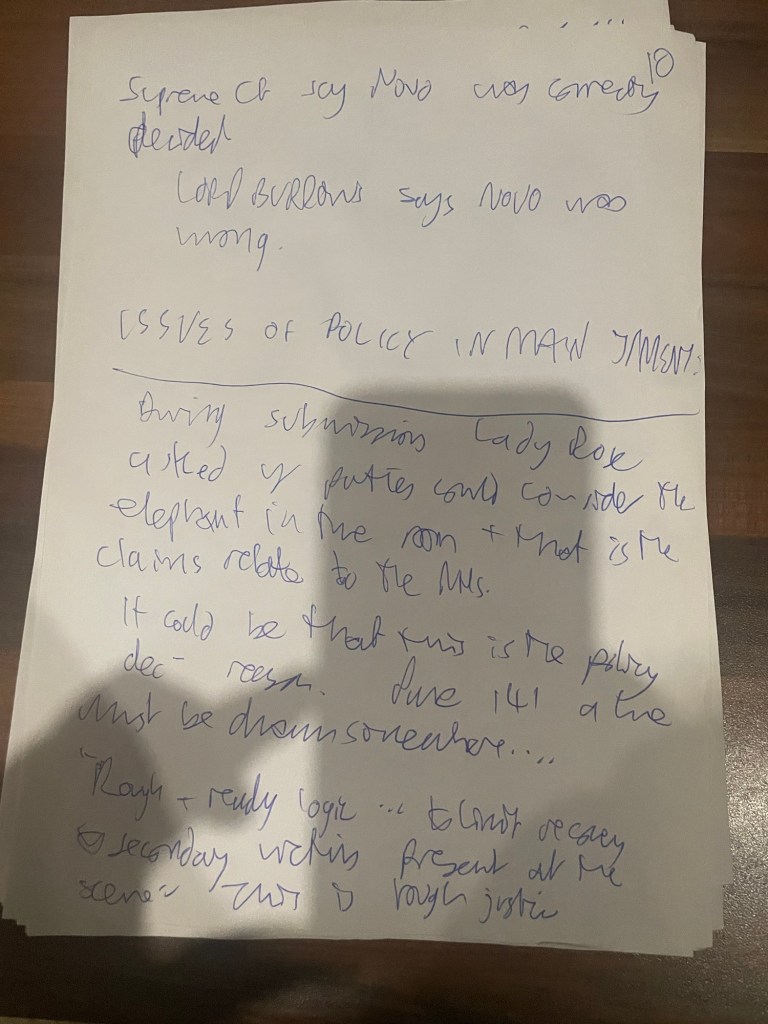 10
Supreme Ct say Novo was correctly
decided
LORD BURROWS says NOVO was
wrong.
ISSUES OF POLICY IN MAIN JMENT:
During submissions Lady Rose
asked if parties could consider the
elephant in the room + that is the
claims relate to the NHS.
It could be that this is the policy
dec- reason. Para 141 a line
must be drawn somewhere....
"Rough + ready logic ... to limit recovery
to secondary victims present at the
scene" This is rough justice